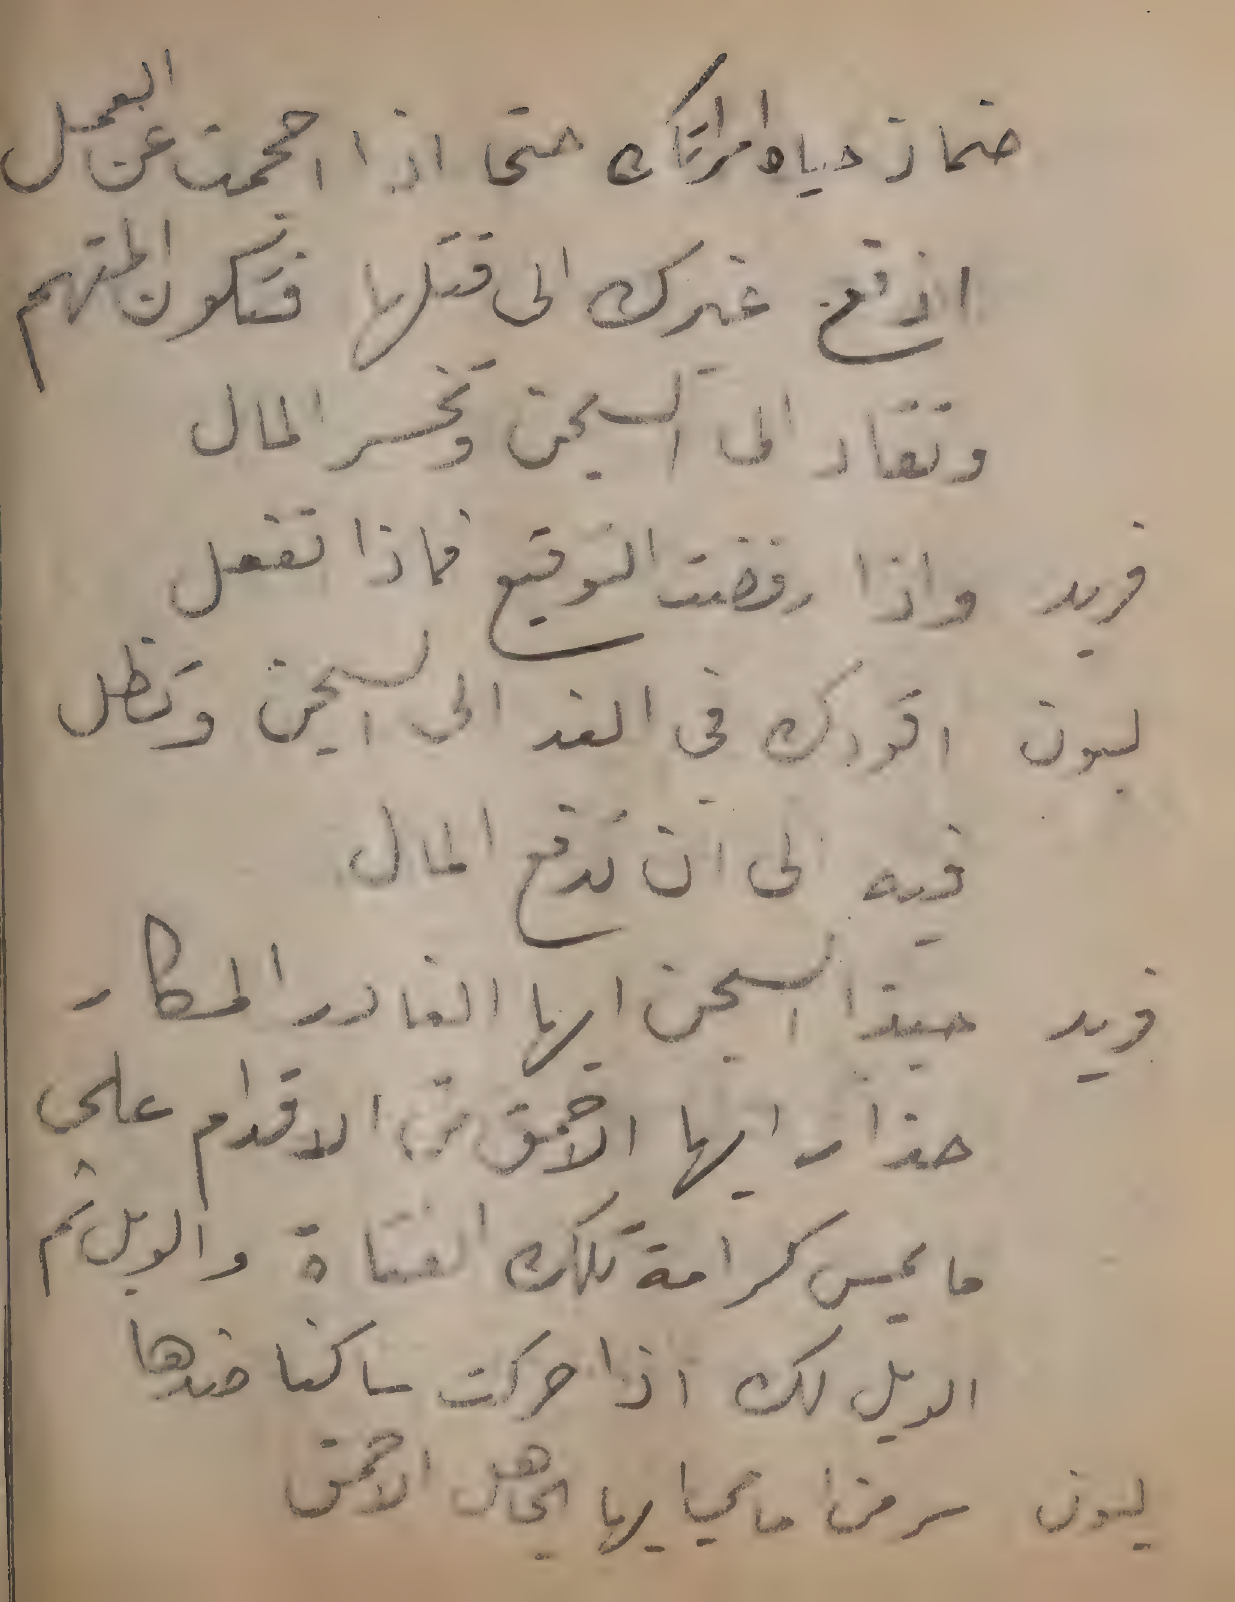 ضمان حياه امراتك حتى اذا احجمت عن العمل
ادفع غيرك الى قتلها فتكون المتهم
وتقاد الى السجن وتخسر المال
فريد واذا رفضت التوقيع فماذا تفعل
ليون اقودك في الغد الى السجن وتظل
فيه الى ان تدفع المال
فريد حبذا السجن ايها الغادر المكار
حذار ايها الاحمق من الاقدام على
ما يمس كرامة تلك الفتاة والويل ثم
الويل لك اذا حركت ساكنا ضدها
ليون سر من ايها الجاهل الاحمق